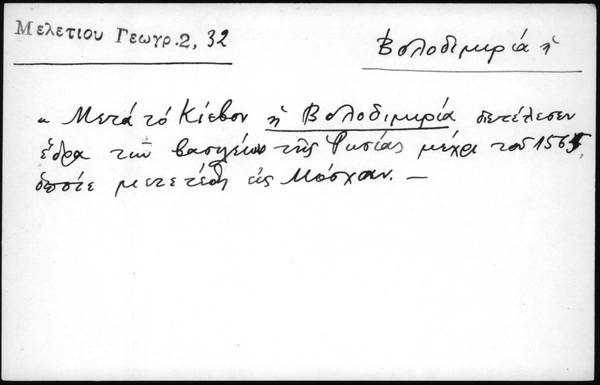 Μελετίου Γεωγρ.2, 32
Βολοδιμιρία ἡ
" Μετά τό Κίεβον ἡ Βολοδιμιρία διετέλεσεν
ἕδρα τῶν βασιλείων τῆς Ρωσίας μέχρι τοῦ 1565,
ὁπότε μετετέθη εἰς Μόσχαν. —